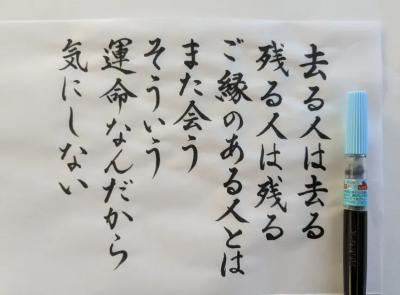 去る人は去る
残る人は残る
ご縁のある人とは
また会う
そういう
運命なんだから
気にしない